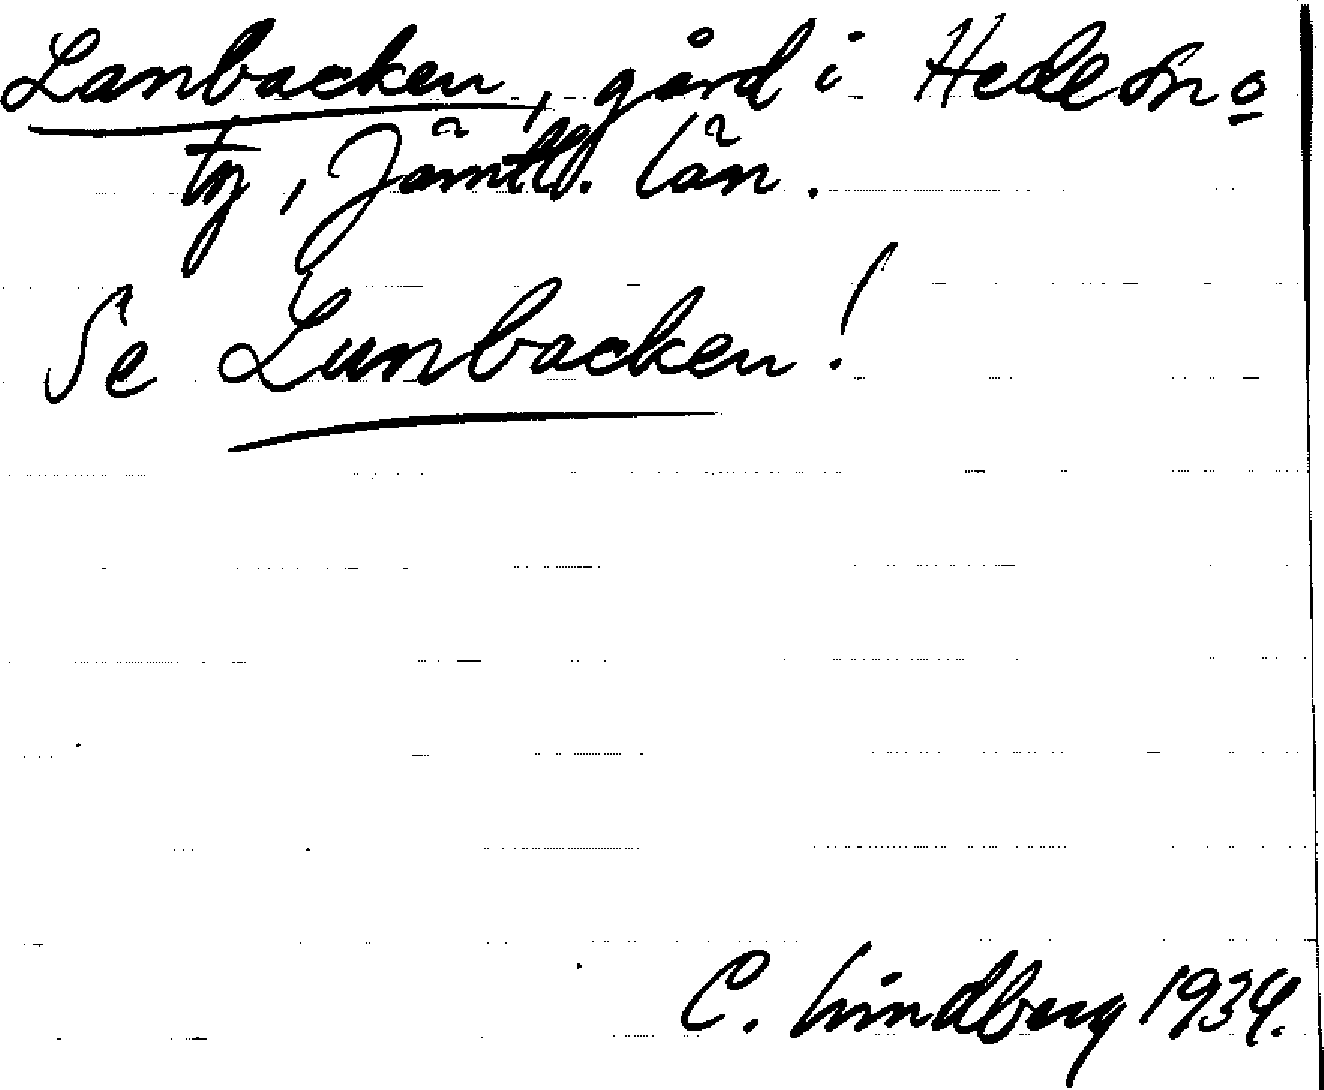 Lanbacken, gård i Hede sn o
tg, Jämtl. län.
Se Lunbacken!
C. Lindberg 1934.